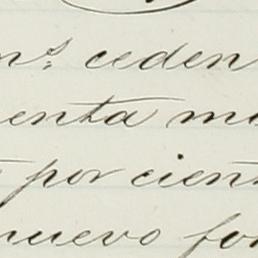 ms. ceden
enta m
por cient
nuevo fo